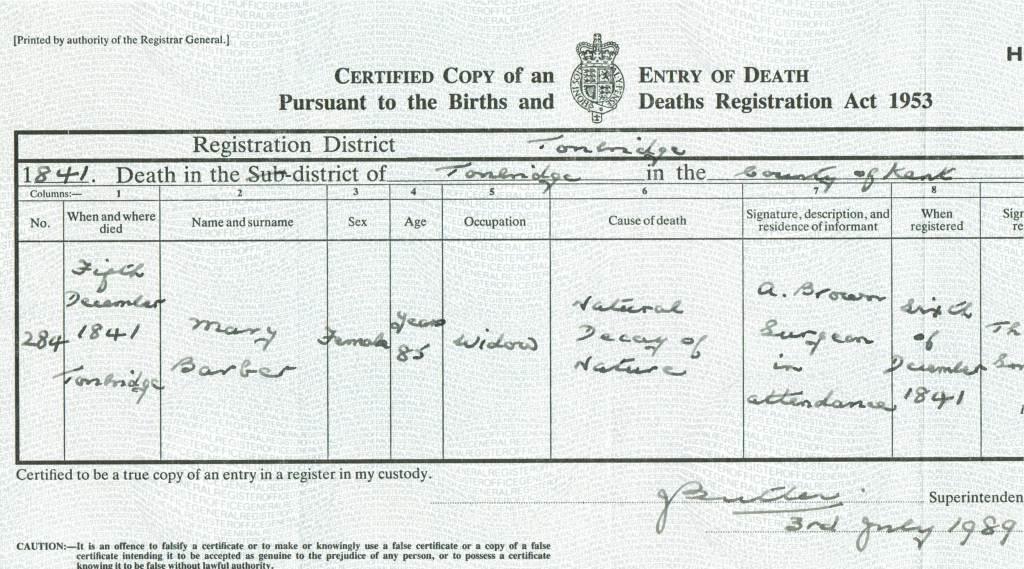 [Printed by authority of the Registrar General.]
H
CERTIFIED COPY of an ENTRY OF DEATH
Pursuant to the Births and Deaths Registration Act 1953
Registration District Tonbridge
1841. Death in the Sub-district of Tonbridge in the County of Kent
Columns:— 1 2 3 4 5 6 7 8
No. When and where died Name and surname Sex Age Occupation Cause of death Signature, description, and residence of informant When registered Sig re
284 Fifth December 1841 Tonbridge Mary Barber Female Years 85 Widow Natural Decay of Nature A. Brown Surgeon in attendance Sixth of December 1841 Th
Certified to be a true copy of an entry in a register in my custody.
Superintenden
3rd July 1989
CAUTION:—It is an offence to falsify a certificate or to make or knowingly use a false certificate or a copy of a false
certificate intending it to be accepted as genuine to the prejudice of any person, or to possess a certificate
knowing it to be false without lawful authority.